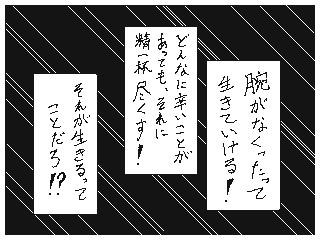 腕がなくったって
生きていける!
どんなに辛いことが
あっても、それに
精一杯尽くす!
それが生きるって
ことだろ!?